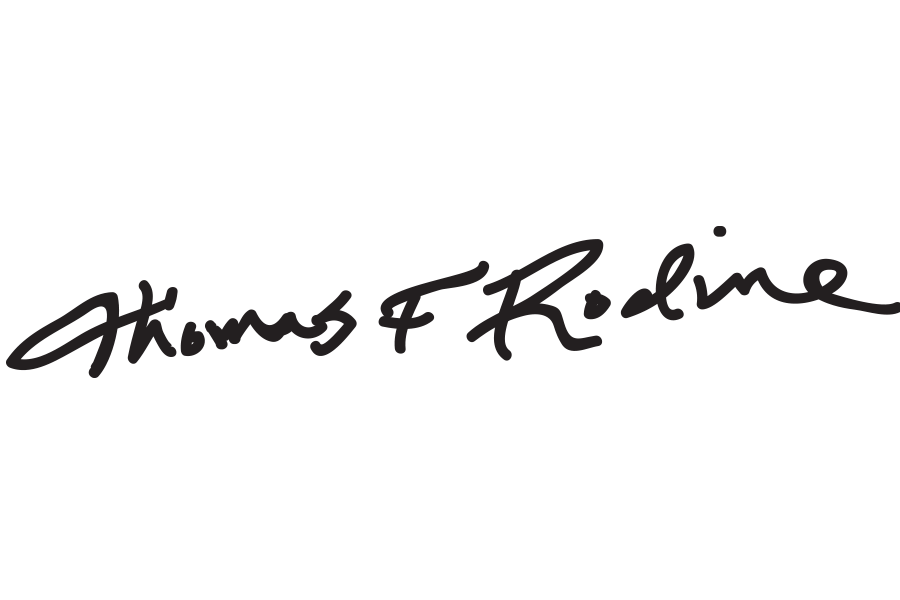 Thomas F Rodine